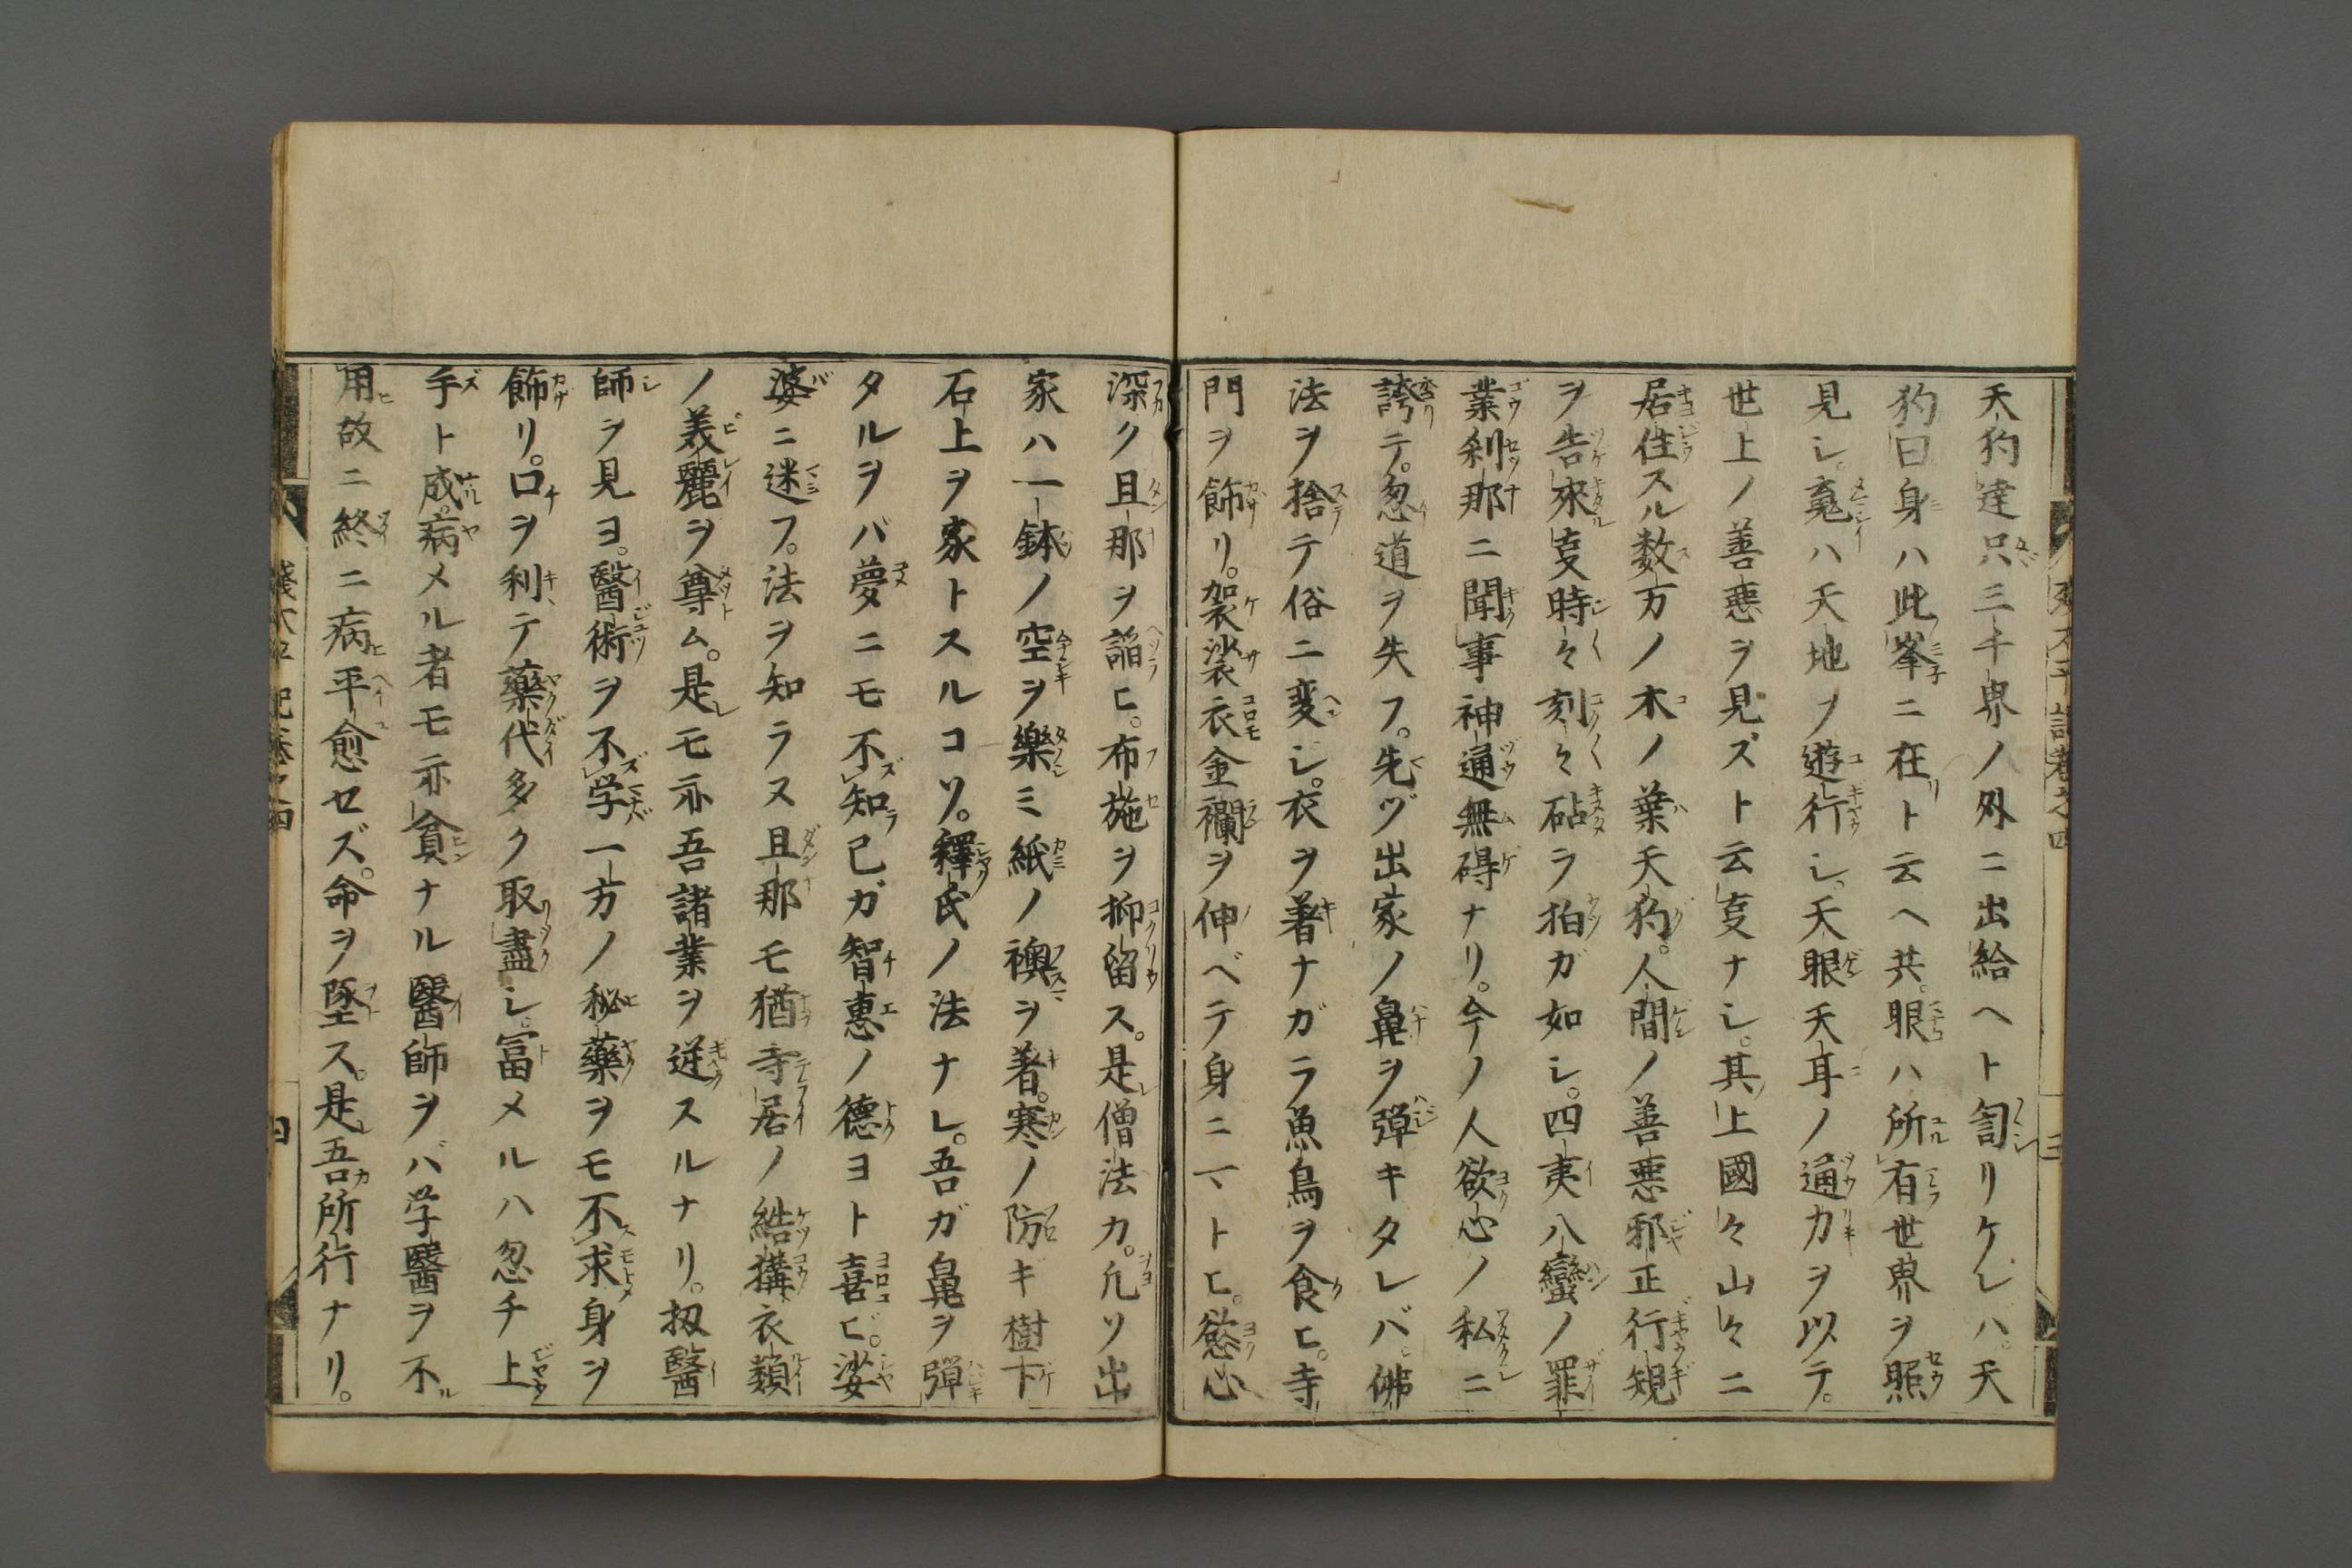 天狗達只三千界ノ外ニ出給ヘト訇リケレバ。天
狗曰身ハ此峯ニ在ト云ヘ共。眼ハ所有世界ヲ照
見シ。䰟ハ天地ノ遊行シ。天眼天耳ノ通力ヲ以テ。
世上ノ善悪ヲ見ズト云㕝ナシ。其上國々山々ニ
居住スル数万ノ木ノ葉天狗。人間ノ善悪邪正行規
ヲ告來㕝時々刻々砧ヲ拍ガ如シ。四夷八蠻ノ罪
業刹那ニ聞事神通無碍ナリ。今ノ人欲心ノ私ニ
誇テ。忽道ヲ失フ。先ヅ出家ノ鼻ヲ弾キタレバ。佛
法ヲ捨テ俗ニ変シ。衣ヲ著ナガラ魚鳥ヲ食ヒ。寺
門ヲ飾リ。袈裟衣金襴ヲ伸ベテ身ニマトヒ。慾心
深ク且那ヲ諂ヒ。布施ヲ抑留ス。是僧法カ。凢ソ出
家ハ一鉢ノ空ヲ樂ミ紙ノ襖ヲ著。寒ノ防ギ樹下
石上ヲ家トスルコソ。釋氏ノ法ナレ。吾ガ鼻ヲ彈
タルヲバ夢ニモ不知己ガ智惠ノ德ヨト喜ビ。娑
婆ニ迷フ。法ヲ知ラヌ且那モ猶寺居ノ結搆衣類
ノ美麗ヲ尊ム。是モ亦吾諸業ヲ逆スルナリ。扨醫
師ヲ見ヨ。醫術ヲ不学一方ノ秘藥ヲモ不求身ヲ
飾リ。口ヲ利テ藥代多ク取盡シ。冨メルハ忽チ上
手ト成。病メル者モ亦貧ナル醫師ヲバ学醫ヲ不
用故ニ終ニ病平愈セズ。命ヲ墜ス。是吾所行ナリ。